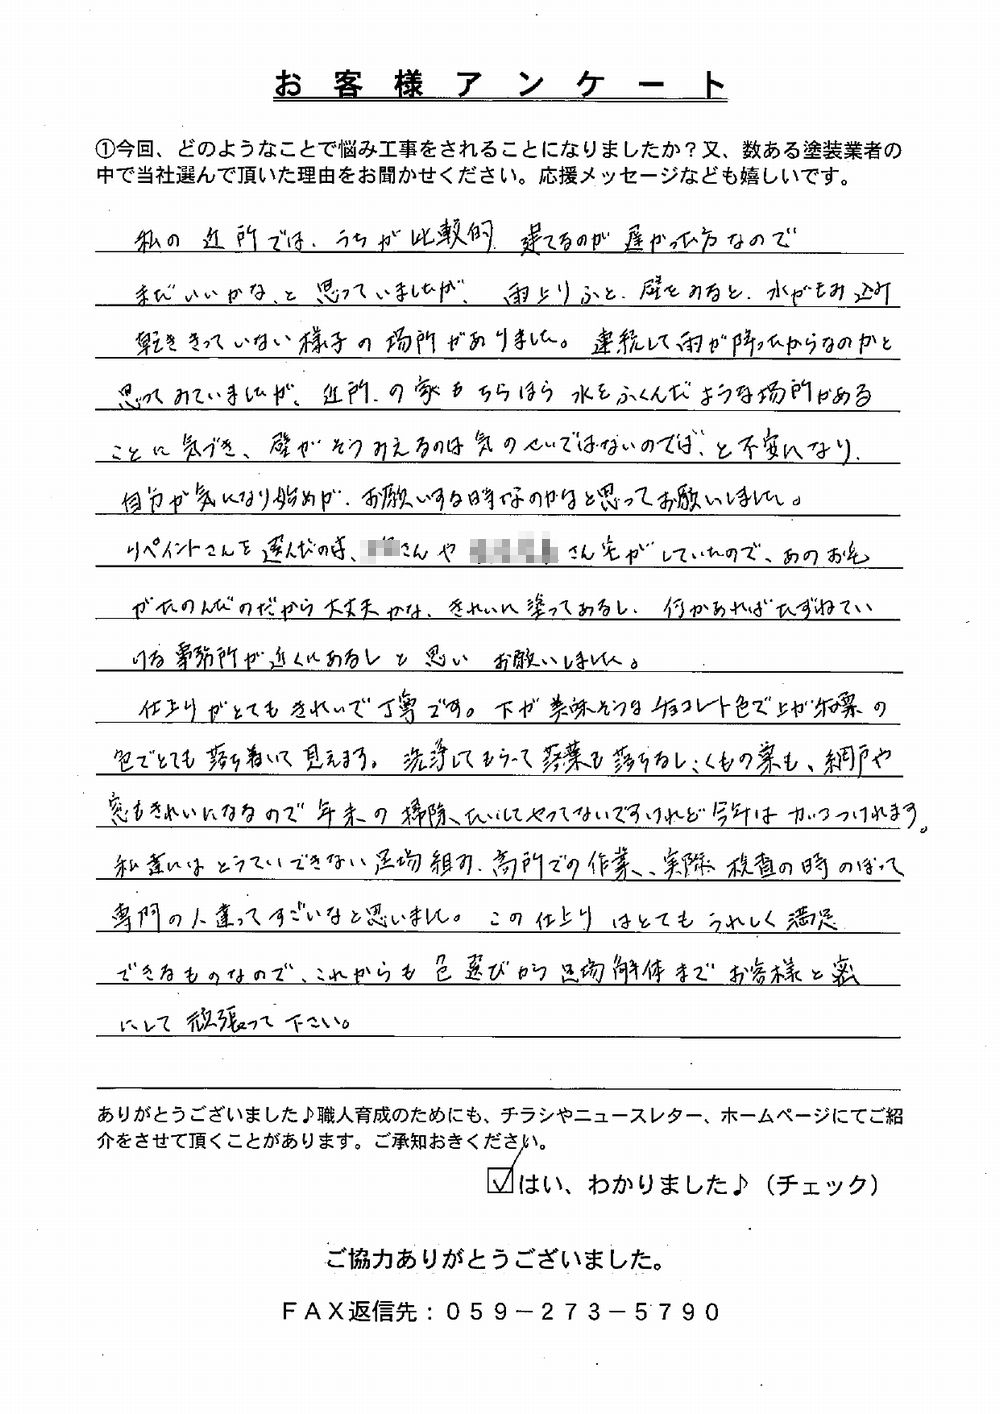 お客様アンケート
①今回、どのようなことで悩み工事をされることになりましたか？又、数ある塗装業者の
中で当社選んで頂いた理由をお聞かせください。応援メッセージなども嬉しいです。
私の近所では、うちが比較的 建てるのが遅かった方なので
まだいいかな、と思っていましたが、雨上りふと、壁をみると、水がもみ込み
乾ききっていない様子の場所がありました。連続して雨が降ったからなのかと
思ってみていましたが、近所の家もちらほら水をふくんだような場所がある
ことに気づき、壁がそうみえるのは気のせいではないのでは、と不安になり、
自分が気になり始めが、お願いする時なのかなと思ってお願いしました。
リペイントさんを選んだのは、さんや さん宅がしていたので、あのお宅
がたのんだのだから大丈夫かな、きれいに塗ってあるし、何かあればたずねてい
ける事務所が近くにあるしと思い お願いしました。
仕上りがとてもきれいで丁寧です。下が美味そうなチョコレート色で上が和栗の
色でとても落ち着いて見えます。洗浄してもらって落葉も落ちるし、くもの巣も、網戸や
窓もきれいになるので年末の掃除、たいしてやってないですけれど今年はカッコつけれます。
私達にはとうていできない足場組み、高所での作業、実際 検査の時のぼって
専門の人達ってすごいなと思いました。この仕上りはとてもうれしく満足
できるものなので、これからも色選びから足場解体までお客様と密
にして頑張って下さい。
ありがとうございました♪職人育成のためにも、チラシやニュースレター、ホームページにてご紹
介をさせて頂くことがあります。ご承知おきください。
☑はい、わかりました♪（チェック）
ご協力ありがとうございました。
ＦＡＸ返信先：０５９－２７３－５７９０